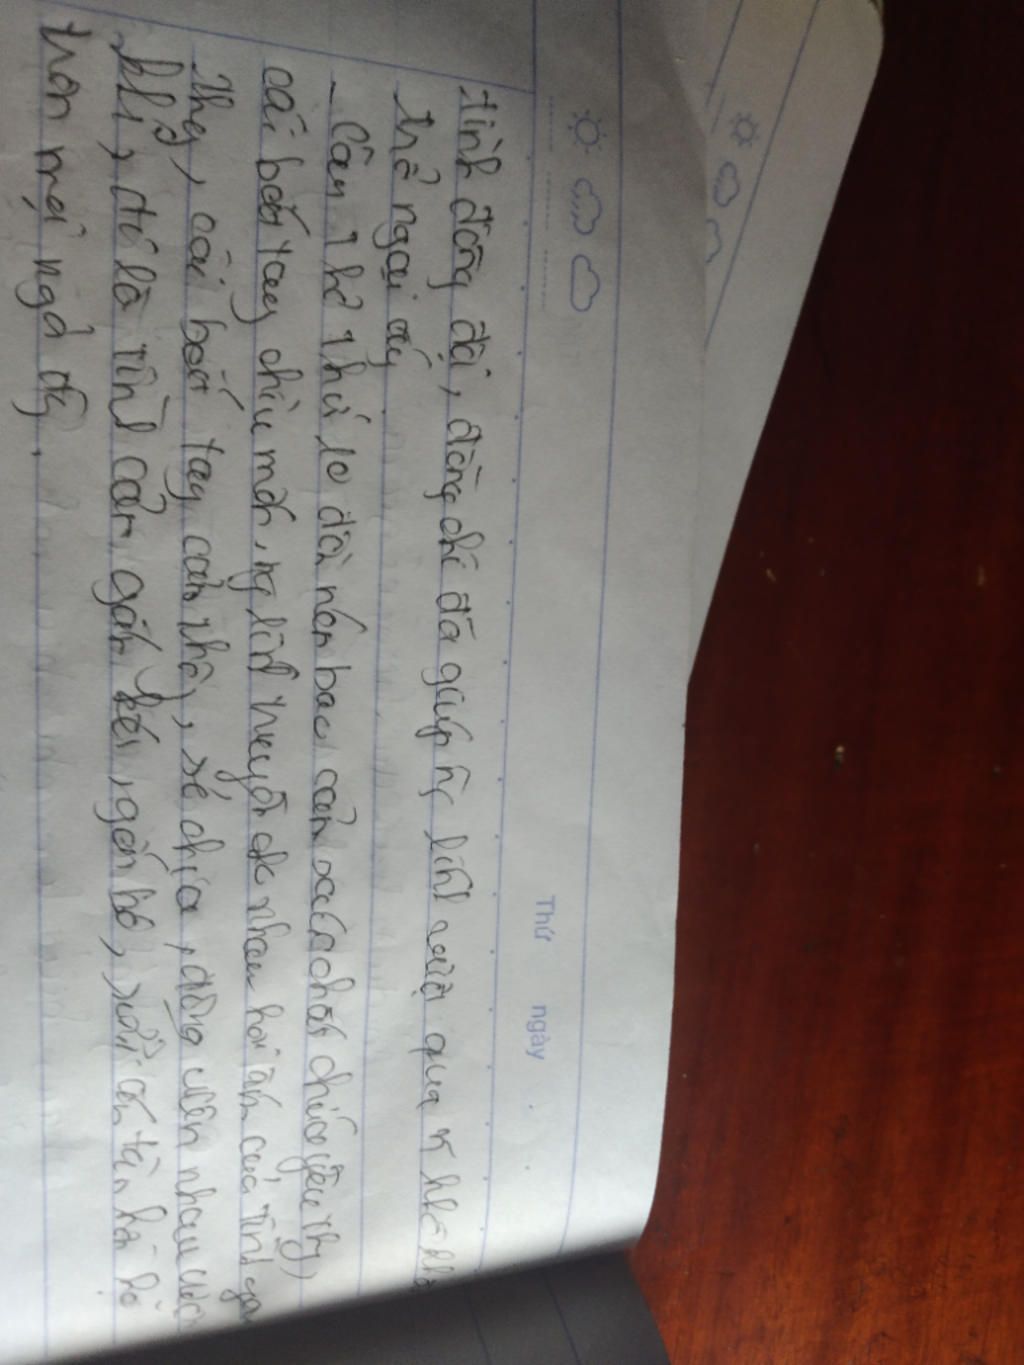 Thứ ngày
tình đồng đội, đồng chí đã giúp ng lính vượt qua n khó khă
thể ngại ấy
- Câu thơ thứ 10 dồn nén bao cảm xúc chất chứa yêu thg
cái bắt tay chìu mến, ng lính truyền cho nhau hơi ấm của tình yêu
thg, cái bắt tay cảm thô, sẻ chia, động viên nhau
khị, đó là tình cảm gắn kết, gắn bó,
trên mọi ngả đg.